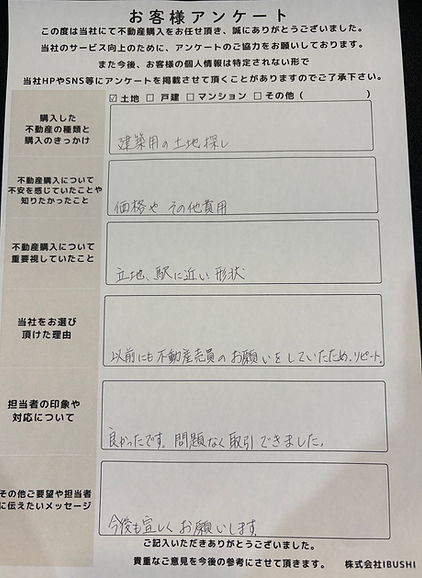 お客様アンケート
この度は当社にて不動産購入をお任せ頂き、誠にありがとうございました。
当社のサービス向上のために、アンケートのご協力をお願いしております。
また今後、お客様の個人情報は特定されない形で
当社HPやSNS等にアンケートを掲載させて頂くことがありますのでご了承下さい。
購入した
不動産の種類と
購入のきっかけ
☑ 土地 □ 戸建 □ マンション □ その他 ( )
建築用の土地探し
不動産購入について
不安を感じていたことや
知りたかったこと
価格や その他費用
不動産購入について
重要視していたこと
立地、駅に近い 形状
当社をお選び
頂けた理由
以前にも不動産売買のお願いをしていたため、リピート。
担当者の印象や
対応について
良かったです。問題なく取引できました。
その他ご要望や担当者
に伝えたいメッセージ
今後も宜しくお願いします。
ご記入いただきありがとうございます。
貴重なご意見を今後の参考にさせて頂きます。 株式会社IBUSHI